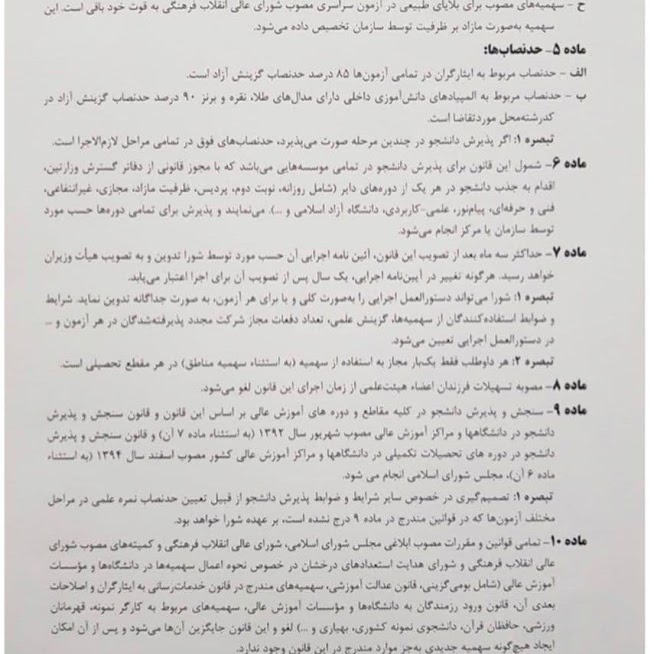 ح - سهمیه‌های مصوب برای بلایای طبیعی در آزمون سراسری مصوب شورای عالی انقلاب فرهنگی به قوت خود باقی است. این
سهمیه به‌صورت مازاد بر ظرفیت توسط سازمان تخصیص داده می‌شود.
ماده ۵- حدنصاب‌ها:
الف - حدنصاب مربوط به ایثارگران در تمامی آزمون‌ها ۸۵ درصد حدنصاب گزینش آزاد است.
ب - حدنصاب مربوط به المپیادهای دانش‌آموزی داخلی دارای مدال‌های طلا، نقره و برنز ۹۰ درصد حدنصاب گزینش آزاد در
کدرشته‌محل موردتقاضا است.
تبصره ۱: اگر پذیرش دانشجو در چندین مرحله صورت می‌پذیرد، حدنصاب‌های فوق در تمامی مراحل لازم‌الاجرا است.
ماده ۶- شمول این قانون برای پذیرش دانشجو در تمامی موسسه‌هایی می‌باشد که با مجوز قانونی از دفاتر گسترش وزارتین،
اقدام به جذب دانشجو در هر یک از دوره‌های دایر (شامل روزانه، نوبت دوم، پردیس، ظرفیت مازاد، مجازی، غیرانتفاعی،
فنی و حرفه‌ای، پیام‌نور، علمی-کاربردی، دانشگاه آزاد اسلامی و ...). می‌نمایند و پذیرش برای تمامی دوره‌ها حسب مورد
توسط سازمان یا مرکز انجام می‌شود.
ماده ۷- حداکثر سه ماه بعد از تصویب این قانون، آئین نامه اجرایی آن حسب مورد توسط شورا تدوین و به تصویب هیأت وزیران
خواهد رسید. هرگونه تغییر در آیین‌نامه اجرایی، یک سال پس از تصویب آن برای اجرا اعتبار می‌یابد.
تبصره ۱: شورا می‌تواند دستورالعمل اجرایی را به‌صورت کلی و یا برای هر آزمون، به صورت جداگانه تدوین نماید. شرایط
و ضوابط استفاده‌کنندگان از سهمیه‌ها، گزینش علمی، تعداد دفعات مجاز شرکت مجدد پذیرفته‌شدگان در هر آزمون و ...
در دستورالعمل اجرایی تعیین می‌شود.
تبصره ۲: هر داوطلب فقط یک‌بار مجاز به استفاده از سهمیه (به استثناء سهمیه مناطق) در هر مقطع تحصیلی است.
ماده ۸- مصوبه تسهیلات فرزندان اعضاء هیئت‌علمی از زمان اجرای این قانون لغو می‌شود.
ماده ۹- سنجش و پذیرش دانشجو در کلیه مقاطع و دوره های آموزش عالی بر اساس این قانون و قانون سنجش و پذیرش
دانشجو در دانشگاهها و مراکز آموزش عالی مصوب شهریور سال ۱۳۹۲ (به استثناء ماده ۷ آن) و قانون سنجش و پذیرش
دانشجو در دوره های تحصیلات تکمیلی در دانشگاهها و مراکز آموزش عالی کشور مصوب اسفند سال ۱۳۹۴ (به استثناء
ماده ۶ آن)، مجلس شورای اسلامی انجام می شود.
تبصره ۱: تصمیم‌گیری در خصوص سایر شرایط و ضوابط پذیرش دانشجو از قبیل تعیین حدنصاب نمره علمی در مراحل
مختلف آزمون‌ها که در قوانین مندرج در ماده ۹ درج نشده است، بر عهده شورا خواهد بود.
ماده ۱۰- تمامی قوانین و مقررات مصوب ابلاغی مجلس شورای اسلامی، شورای عالی انقلاب فرهنگی و کمیته‌های مصوب شورای
عالی انقلاب فرهنگی و شورای هدایت استعدادهای درخشان در خصوص نحوه اعمال سهمیه‌ها در دانشگاه‌ها و مؤسسات
آموزش عالی (شامل بومی‌گزینی، قانون عدالت آموزشی، سهمیه‌های مندرج در قانون خدمات‌رسانی به ایثارگران و اصلاحات
بعدی آن، قانون ورود رزمندگان به دانشگاه‌ها و مؤسسات آموزش عالی، سهمیه‌های مربوط به کارگر نمونه، قهرمانان
ورزشی، حافظان قرآن، دانشجوی نمونه کشوری، بهیاری و ...) لغو و این قانون جایگزین آن‌ها می‌شود و پس از آن امکان
ایجاد هیچ‌گونه سهمیه جدیدی به‌جز موارد مندرج در این قانون وجود ندارد.